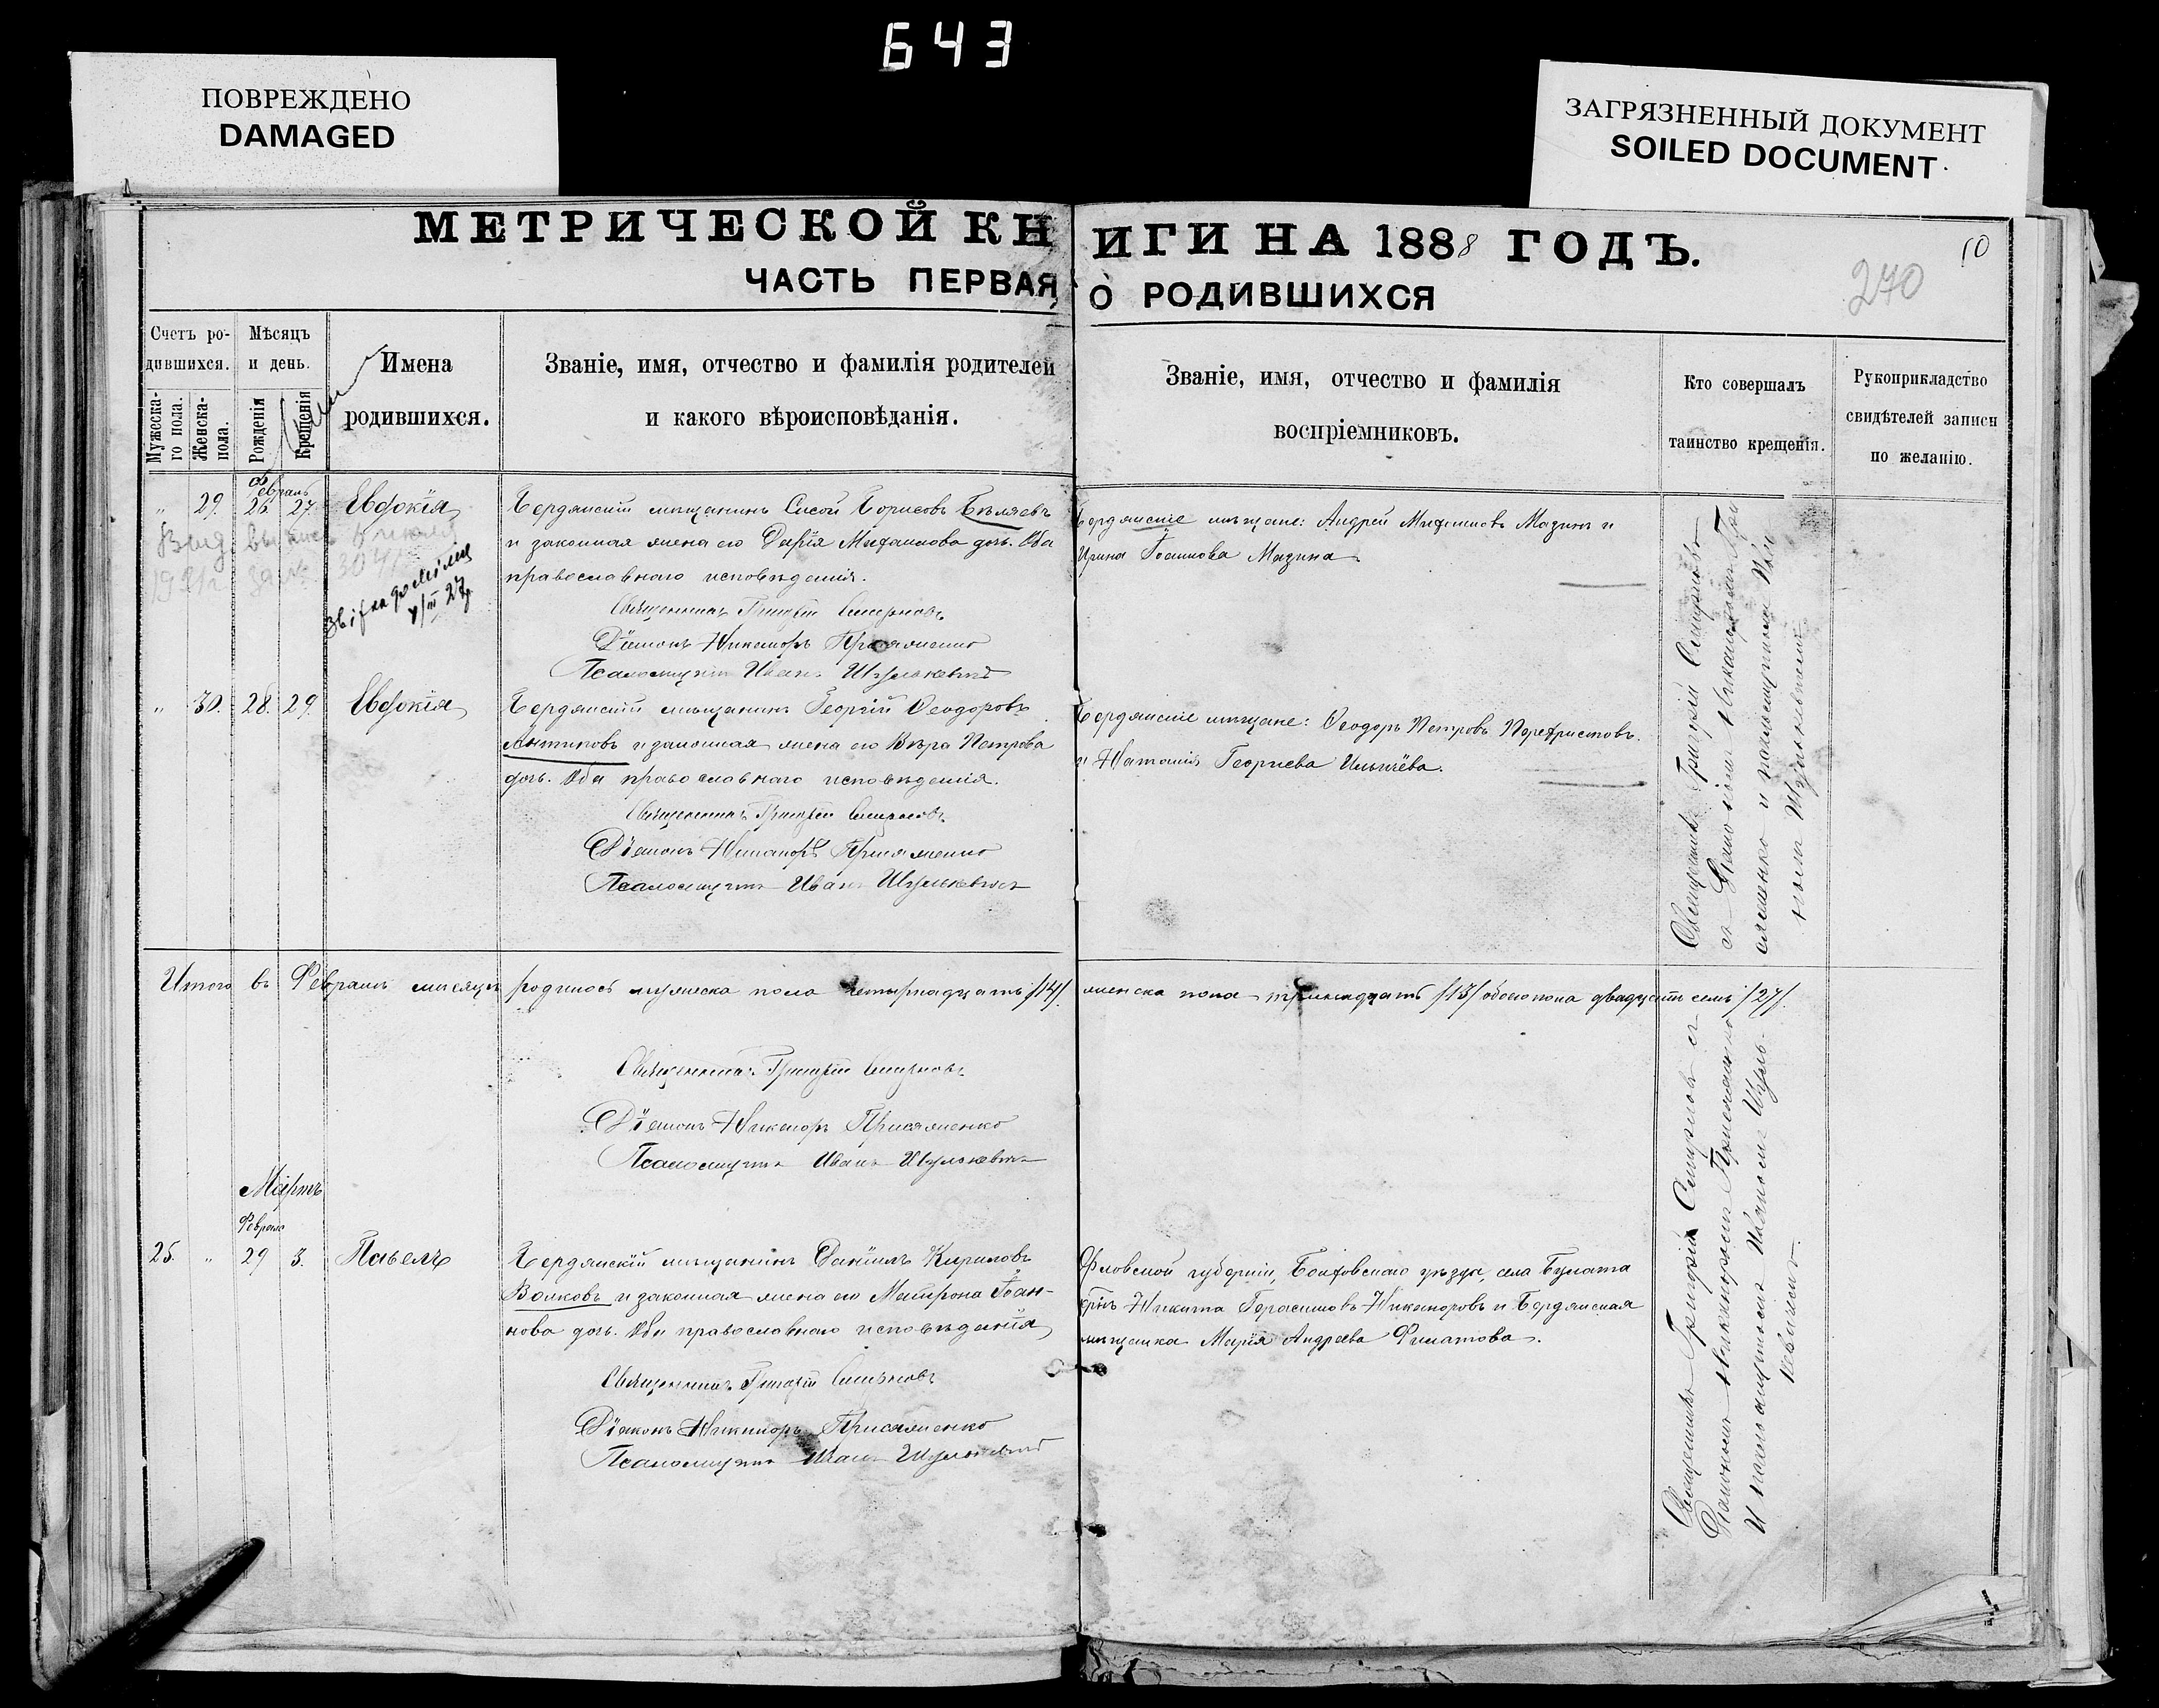 643
ПОВРЕЖДЕНО
DAMAGED
ЗАГРЯЗНЕННЫЙ ДОКУМЕНТ
SOILED DOCUMENT
МЕТРИЧЕСКОЙ КНИГИ НА 1888 ГОДЪ.
10
270
ЧАСТЬ ПЕРВАЯ, О РОДИВШИХСЯ
Счетъ ро-
дившихся.
Мужеска-
го пола.
Женска-
пола.
Мѣсяцъ
и день.
Рожденія
Крещенія
Имена
родившихся.
Званіе, имя, отчество и фамилія родителей
и какого вѣроисповѣданія.
Званіе, имя, отчество и фамилія
воспріемниковъ.
Кто совершалъ
таинство крещенія.
Рукоприкладство
свидѣтелей записи
по желанію.
Февраль
„ 29. 26 27. Евдокія
Бердянскій мѣщанинъ Сисой Борисовъ Бѣляевъ
и законная жена его Дарія Михаилова дочь. Оба
православнаго исповѣданія.
Священникъ Григорій Смирновъ
Діаконъ Никаноръ Присяженко
Псаломщикъ Иванъ Шулькевичъ
Бердянскіе мѣщане: Андрей Мазинъ и
Ирина Іоаннова Мазина
„ 30. 28. 29. Евдокія
Бердянскій мѣщанинъ Георгій Ѳеодоровъ
и законная жена его Вѣра Петрова
дочь. Оба православнаго исповѣданія.
Священникъ Григорій Смирновъ
Діаконъ Никаноръ Присяженко
Псаломщикъ Иванъ Шулькевичъ
Бердянскіе мѣщане: Ѳеодоръ Петровъ
и Наталія Георгиева
Священникъ Григорій Смирновъ
съ Діакономъ Никаноромъ При-
сяженко и псаломщикомъ Ива-
номъ Шулькевичемъ
Итого въ Февралѣ мѣсяцѣ родилось мужеска пола четырнадцать /14/ женска пола тринадцать /13/ обоего пола двадцать семь /27/.
Священникъ Григорій Смирновъ
Діаконъ Никаноръ Присяженко
Псаломщикъ Иванъ Шулькевичъ
Мартъ
Февраль
25. „ 29 3. Павелъ
Бердянскій мѣщанинъ Даніилъ Кириловъ
Волковъ и законная жена его Матрона Іоан-
нова дочь. Оба православнаго исповѣданія
Священникъ Григорій Смирновъ
Діаконъ Никаноръ Присяженко
Псаломщикъ Иванъ Шулькевичъ
Орловской губерніи, Болховскаго уѣзда, села
Никита Герасимовъ Никаноровъ и Бердянская
мѣщанка Марія Андреева Филатова.
Священникъ Григорій Смирновъ съ
Діакономъ Никаноромъ Присяженко
и псаломщикомъ Иваномъ Шуль-
кевичемъ.